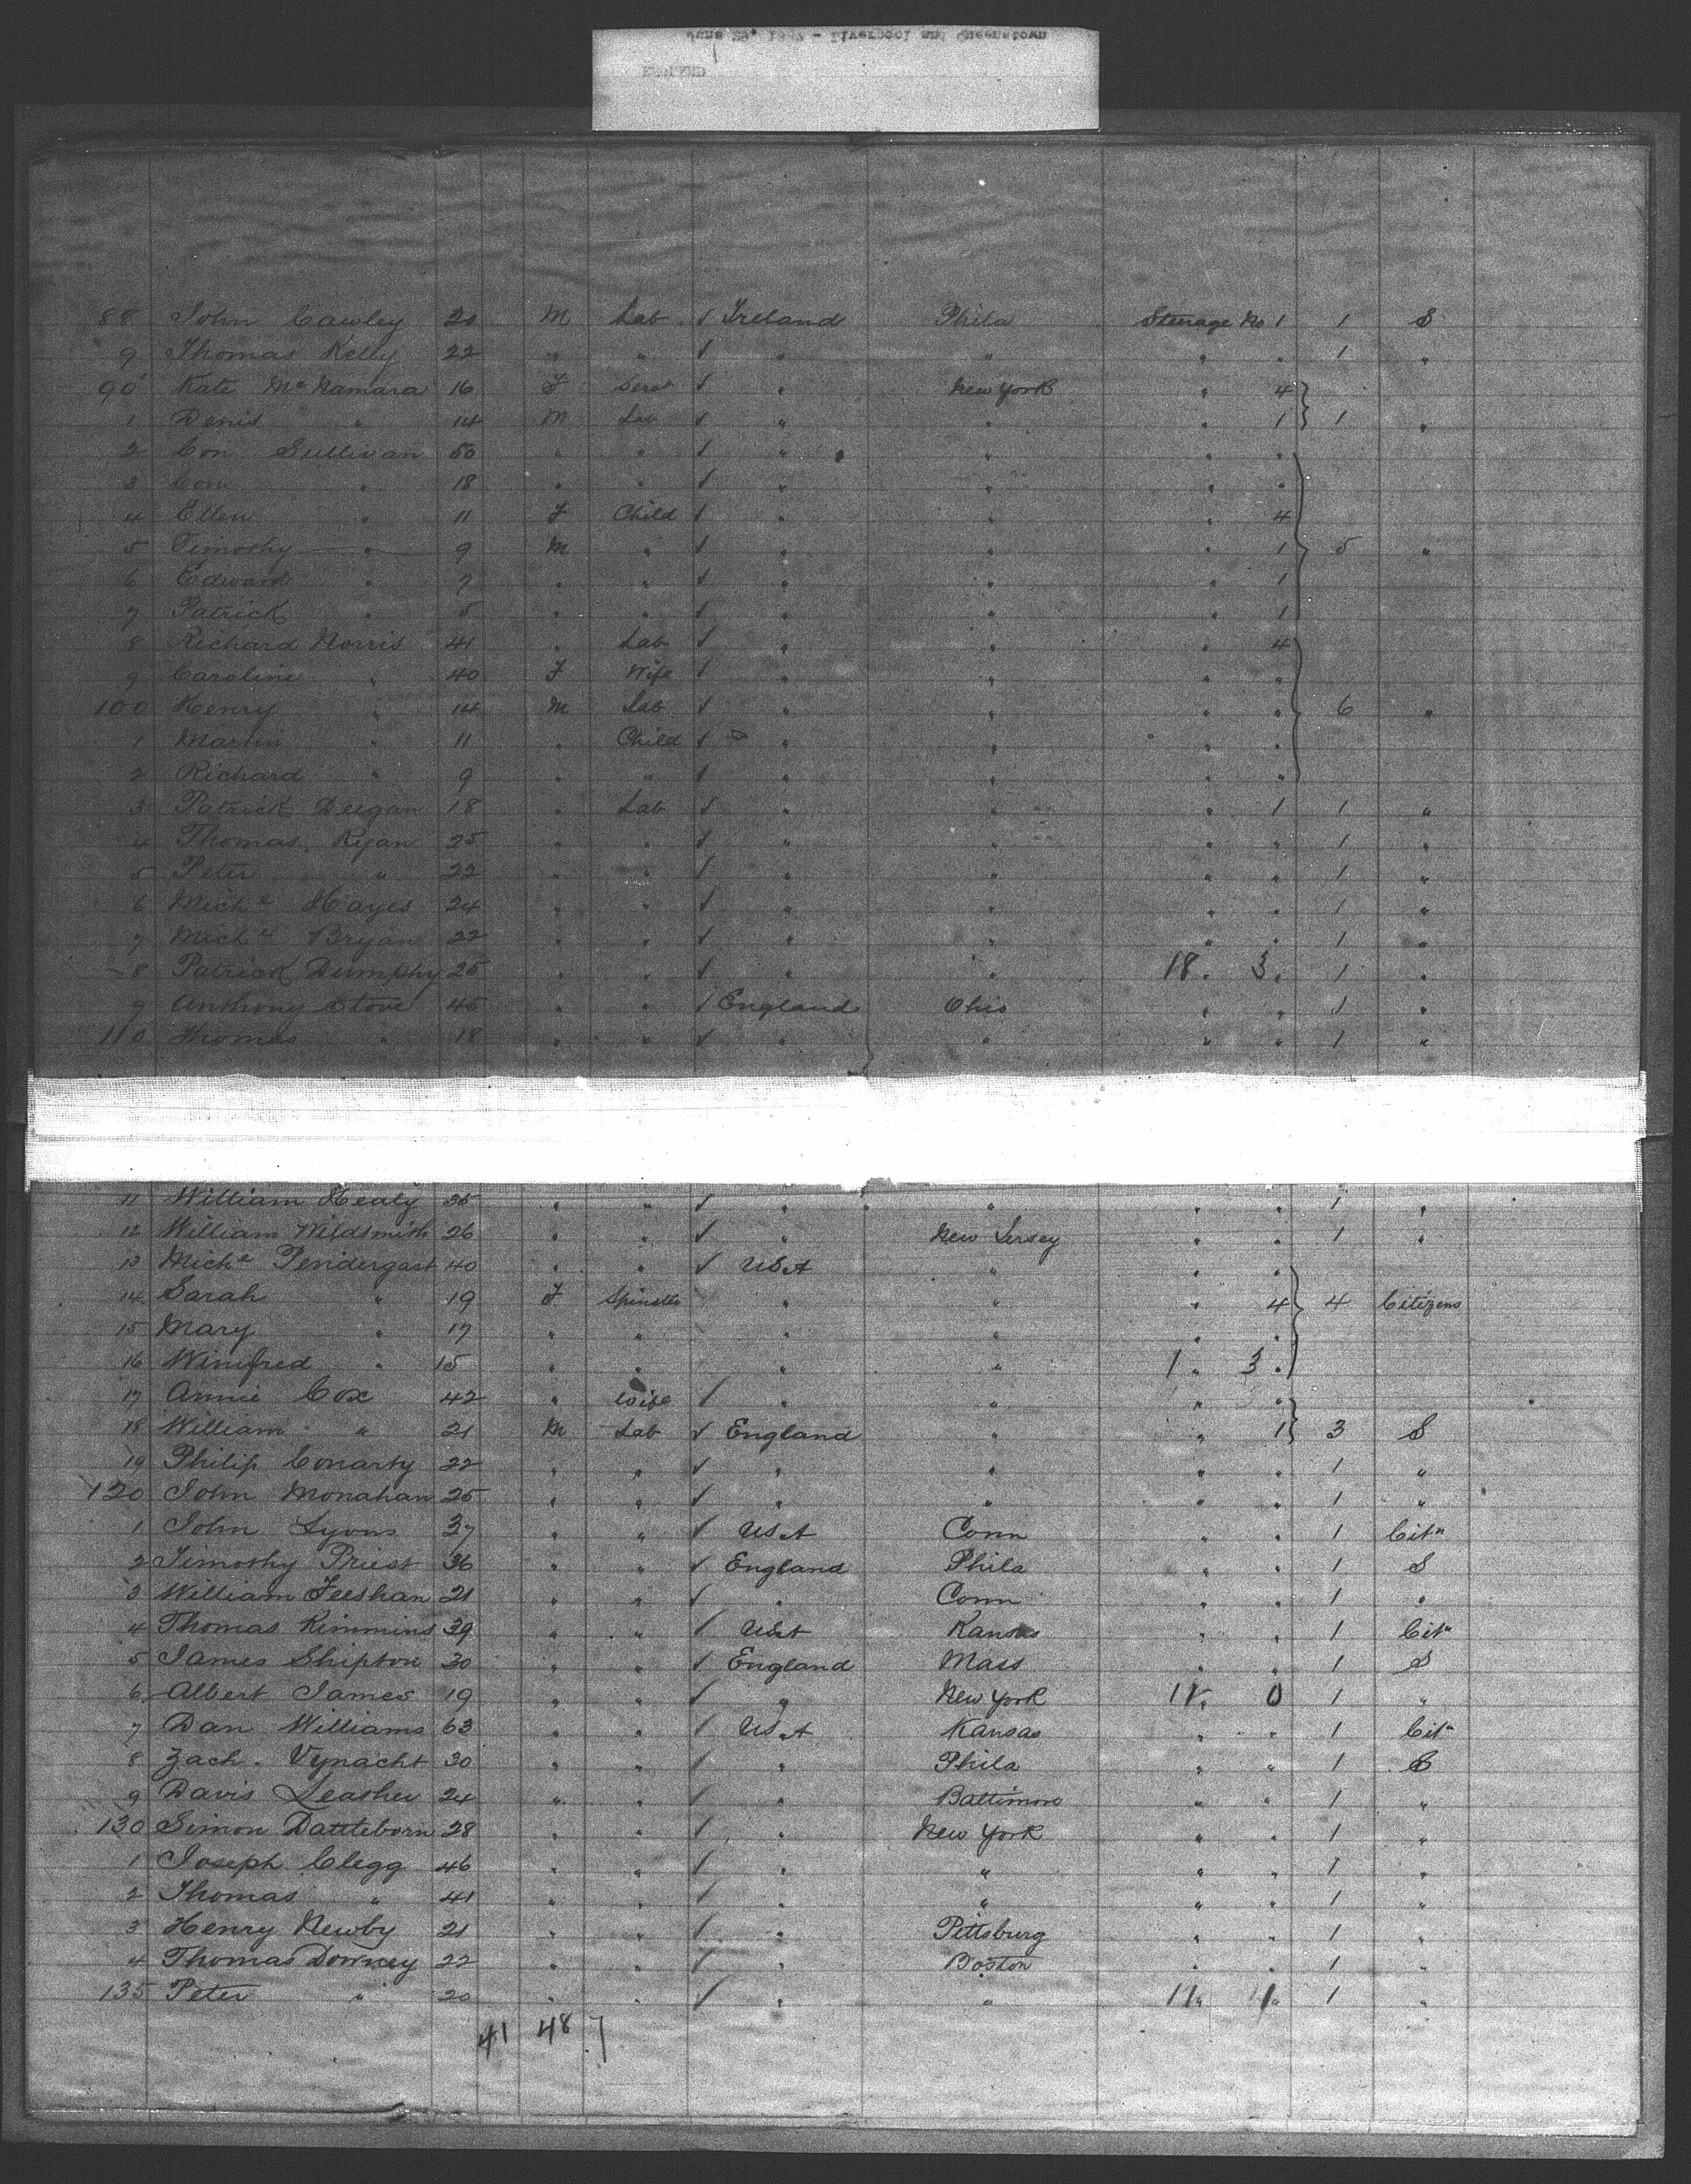 Liverpool and Queenstown
88 John Cawley 20 M Lab ✓ Ireland Phila Steerage No 1 1 S
9 Thomas Kelly 22 " " ✓ " " " " 1 "
90 Kate McNamara 16 F Servt ✓ " New York " 4
1 Denis " 14 M Lab ✓ " " " 1 1 "
2 Con. Sullivan 50 " " ✓ " " " "
3 Con " 18 " " ✓ " " " "
4 Ellen " 11 F Child ✓ " " " 4
5 Timothy " 9 M " ✓ " " " 1 5 "
6 Edward " 7 " " ✓ " " " 1
7 Patrick " 5 " " ✓ " " " 1
8 Richard Norris 41 " Lab ✓ " " " 4
9 Caroline " 40 F Wife ✓ " " " "
100 Henry " 14 M Lab ✓ " " " " 6 "
1 Martin " 11 " Child ✓ " " " "
2 Richard " 9 " " ✓ " " " "
3 Patrick Deegan 18 " Lab ✓ " " " 1 1 "
4 Thomas Ryan 25 " " ✓ " " " " 1 "
5 Peter " 22 " " ✓ " " " " 1 "
6 Michl Hayes 24 " " ✓ " " " " 1 "
7 Michl Bryan 22 " " ✓ " " " " 1 "
8 Patrick Dumphy 25 " " ✓ " " 18 " 3 " 1 "
9 Anthony Stove 45 " " ✓ England Ohio " " 1 "
110 Thomas " 18 " " ✓ " " " " 1 "
11 William Healy 35 " " ✓ " " " " 1 "
12 William Wildsmith 26 " " ✓ " New Jersey " " 1 "
13 Michl Pendergast 40 " " ✓ USA " " "
14 Sarah " 19 F Spinster " " " 4 4 Citizens
15 Mary " 17 " " " " " "
16 Winifred " 15 " " " " 1 " 3 "
17 Annie Cox 42 " Wife ✓ " " " "
18 William " 21 M Lab ✓ England " " 1 3 S
19 Philip Conarty 22 " " ✓ " " " " 1 "
120 John Monahan 25 " " ✓ " " " " 1 "
1 John Lyons 37 " " ✓ USA Conn " " 1 Citn
2 Timothy Priest 36 " " ✓ England Phila " " 1 S
3 William Feeshan 21 " " ✓ " Conn " " 1 "
4 Thomas Kimmins 39 " " ✓ USA Kansas " " 1 Citn
5 James Shipton 30 " " ✓ England Mass " " 1 S
6 Albert James 19 " " ✓ " New York " 0 1 "
7 Dan Williams 63 " " ✓ USA Kansas " " 1 Citn
8 Zach. Vynacht 30 " " ✓ " Phila " " 1 S
9 Davis Leasher 24 " " ✓ " Baltimore " " 1 "
130 Simon Dattleborn 28 " " ✓ " New York " " 1 "
1 Joseph Clegg 46 " " ✓ " " " " 1 "
2 Thomas " 41 " " ✓ " " " " 1 "
3 Henry Newby 21 " " ✓ " Pittsburg " " 1 "
4 Thomas Downey 22 " " ✓ " Boston " " 1 "
135 Peter " 20 " " ✓ " " 11 " 1 " 1 "
41 48 7